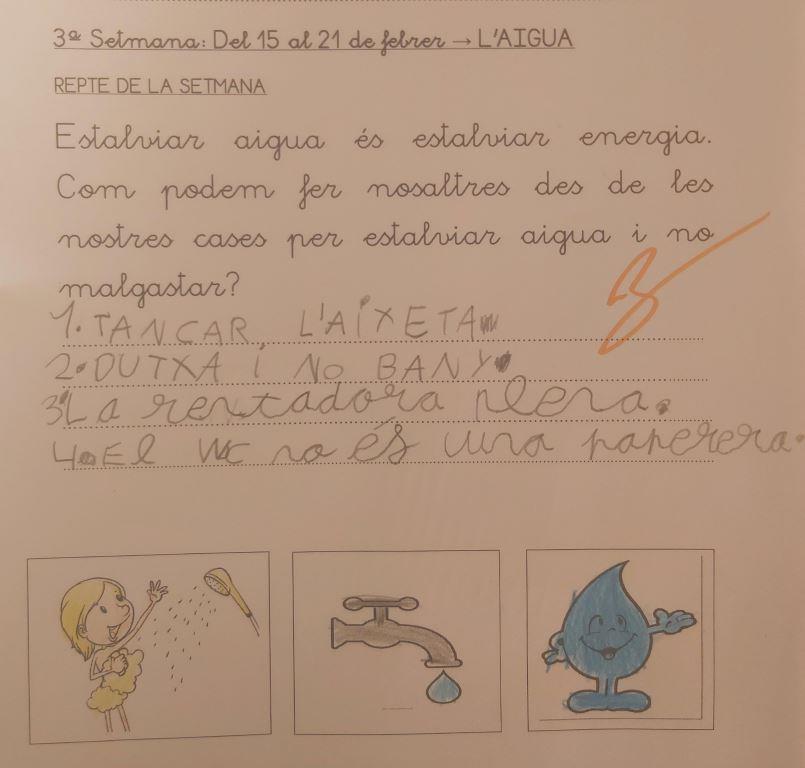 3ª Setmana: Del 15 al 21 de febrer → L'AIGUA
REPTE DE LA SETMANA
Estalviar aigua és estalviar energia.
Com podem fer nosaltres des de les
nostres cases per estalviar aigua i no
malgastar?
1. TANCAR L'AIXETA
2. DUTXA I NO BANY.
3. La rentadora plena.
4. El WC no és una paperera.